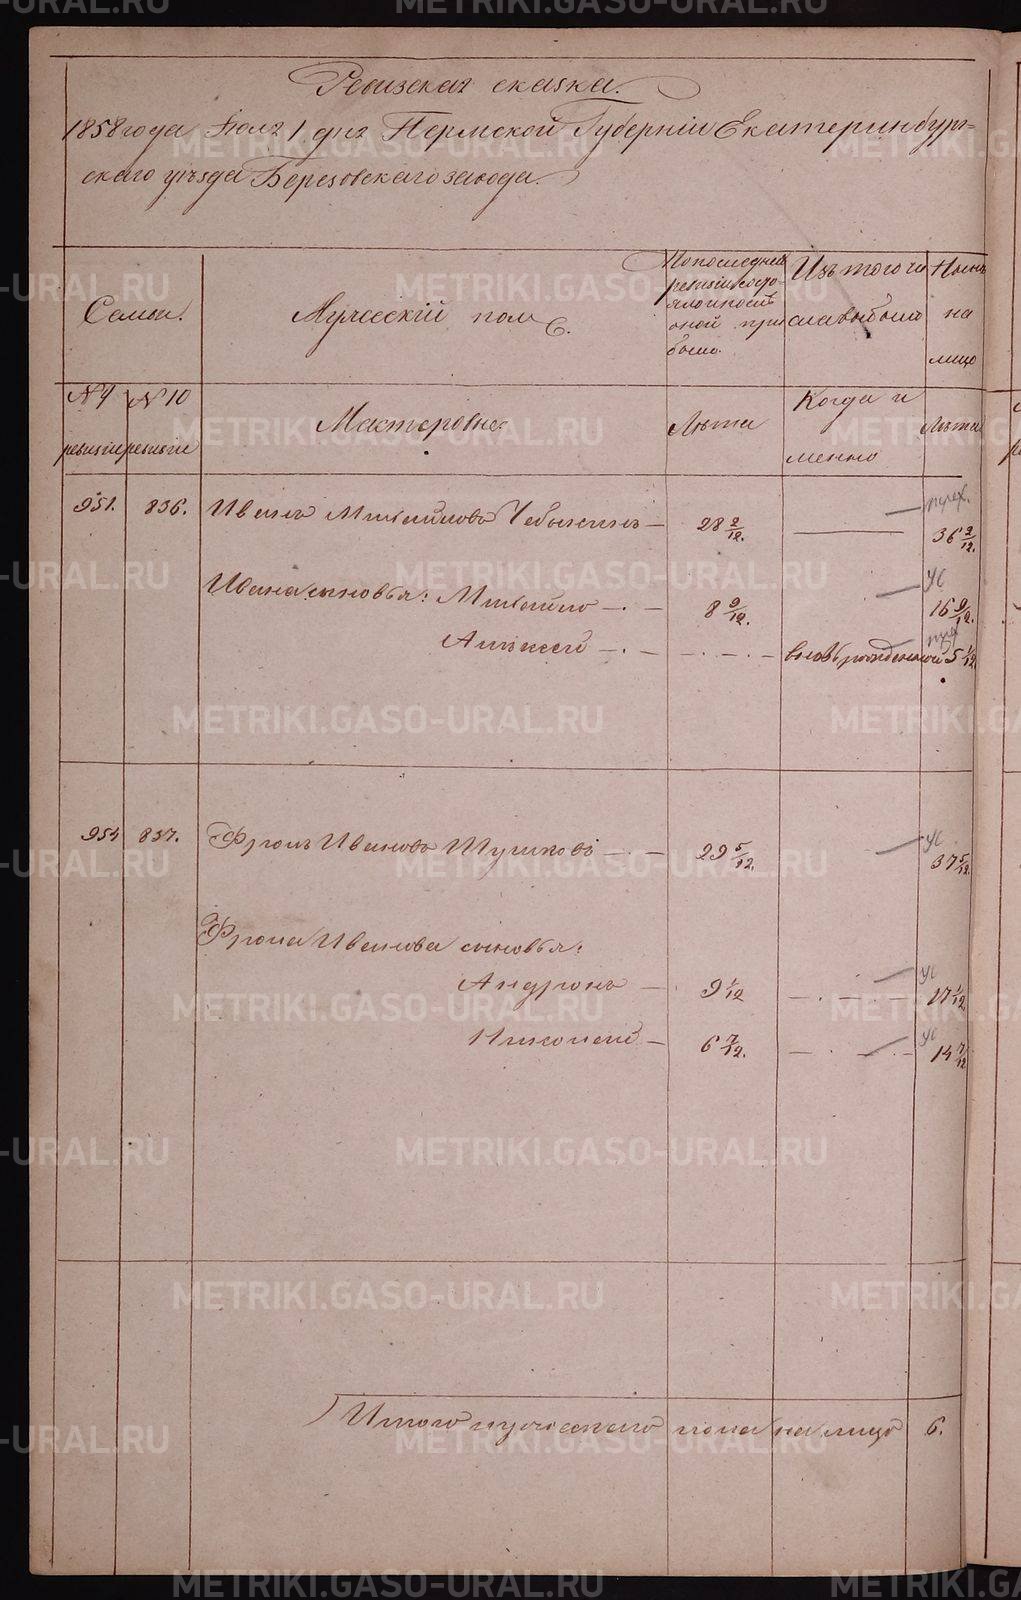 Ревизская сказка.
1858 года Іюля 1 дня Пермской Губерніи Екатеринбург-
скаго уѣзда Березовскаго завода.
Семьи.
Мужескій полъ
По последней
ревизіи состо-
яло и после
оной при
было
Изъ того чи
сла выбыло
Нынѣ
на
лицо
№ 9
ревизіи
№ 10
ревизіи
Мастеровые
Лѣта
Когда и
менно
Лѣта
951. 836. Иванъ Михайловъ Чебыкинъ — 28 2/12. — 36 2/12.
Ивана сыновья: Михайло — 8 9/12. 16 9/12.
Алексей — вновь рожденной 5 1/12
954 837. Фролъ Ивановъ Шушковъ — 29 5/12. 37 5/12.
Фрола Иванова сыновья:
Андронъ — 9 1/12 — 17 1/12
Николай — 6 7/12. — 14 7/12
Итого мужескаго пола на лицо 6.
METRIKI.GASO-URAL.RU